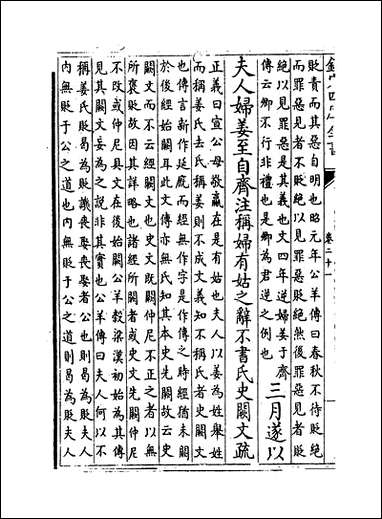 欽定四庫全書
卷二十一
貶責而其惡自明也昭元年公羊傳曰春秋不待貶絶
而罪惡見者不貶絶以見罪惡貶絶然後罪惡見者貶
絶以見罪惡是其義也文四年逆婦姜于齊
傳云卿不行非禮也是卿為君逆之例也
三月遂以
夫人婦姜至自齊注稱婦有姑之辭不書氏史闕文疏
正義曰宣公母敬嬴在是有姑也夫人以姜為姓舉姓
而稱姜氏去氏稱姜則不成文義知不稱氏者史闕文
也傳言新作延廐而經無作字是作傳之時經猶未闕
於後經始闕耳此文傳亦無氏知其本史先闕故云史
闕文而不云經闕文也史文既闕仲尼不正之者以無
所褒貶故因其詳略也諸經所闕者或史文先闕仲尼
不改或仲尼具文在後始闕公羊穀梁漢初始為其傳
見其闕文妄為之說非其實也公羊傳曰夫人何以不
稱姜氏貶曷為貶譏喪娶喪娶者公也則曷為貶夫人
內無貶于公之道也內無貶于公之道則曷為貶夫人